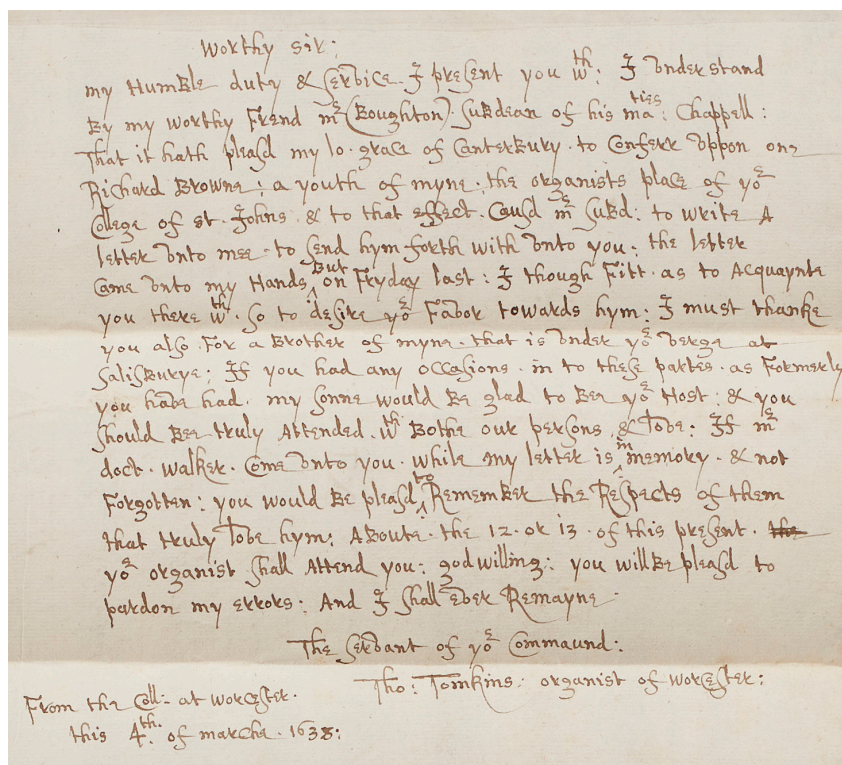 Worthy sir:
my Humble duty & service. I present you wth: I understand
By my worthy Frend mr (Boughton) Subdean of his maties: Chappell:
That it hath pleasd my lo. grace of Canterbury. to Conferr uppon one
Richard Browne: a youth of myne, the organists place of yor
College of st. Johns. & to that effect. Causd mr Subd: to write A
letter unto mee. to send hym forth with unto you: the letter
Came unto my Hands, But on Fryday last: I though Fitt. as to Acquaynte
you there wth. so to desire yor Favor towards hym: I must thanke
you also. For a Brother of myne. that is under yor verge at
Salisburye: If you had any occasions. in to these partes. as Formerly
you have had. my sonne would be glad to Bee yor Host: & you
should Bee truly Attended. wth: Bothe our persons, & Love: If mr
doct. walker. Come unto you. while my letter is in memory. & not
Forgotten: you would be pleasd to Remember the Respects of them
that truly Love hym: Aboute. the 12. or 13. of this present. the
yor organist shall Attend you: god willing: you will Be pleasd to
pardon my errors: And I shall ever Remayne.
The Servant of yor Commaund:
Tho: Tomkins: organist of worcester:
From the Coll: at worcester.
this 4th. of marche. 1638: